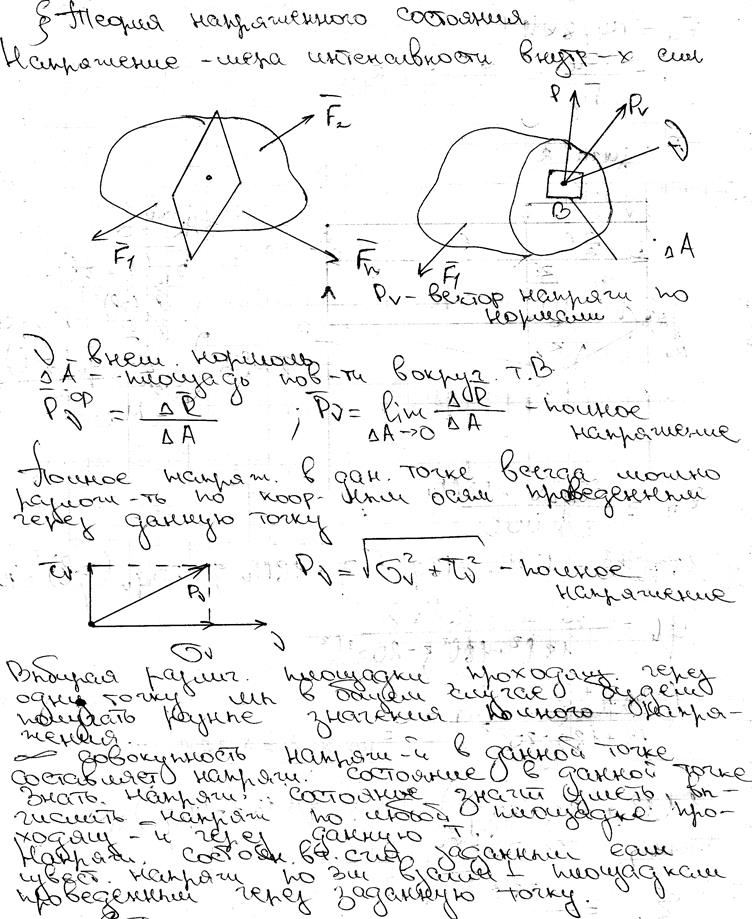 § Теория напряженного состояния
Напряжение - мера интенсивности внутр-х сил
F̅₂
F̅₁
F̅ₙ
P
Pν
ν
B
ΔA
F̅₁
Pν - вектор напряж по
нормали
ν - внеш. нормаль
ΔA - площадь пов-ти вокруг т.В
P̅ν ср = ΔP̅ / ΔA ; P̅ν = lim ΔA→0 ΔP̅ / ΔA - полное
напряжение
Полное напряж. в дан. точке всегда можно
разлож-ть по коор-ным осям проведенным
через данную точку
τν
Pν
σν
ν
Pν = √(σν² + τν²) - полное
напряжение
Выбирая различ. площадки проходящ. через
одну точку мы в общем случае будем
получать разные значения полного напря-
жения.
совокупность напряж-й в данной точке
составляет напряж. состояние в данной точке
Знать напряж. состояние значит уметь вы-
числить напряж по любой площадке про-
ходящ-й через данную т.
Напряж. состоян. счит заданным если
извест. напряж по 3м взаим ⊥ площадкам
проведенным через заданную точку.